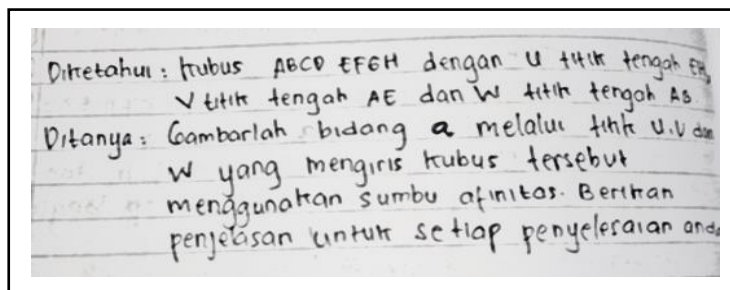 Diketahui : kubus ABCD EFGH dengan U titik tengah EH,
V titik tengah AE dan W titik tengah AB.
Ditanya : Gambarlah bidang a melalui titik U.V dan
W yang mengiris kubus tersebut
menggunakan sumbu afinitas. Berikan
penjelasan untuk setiap penyelesaian anda